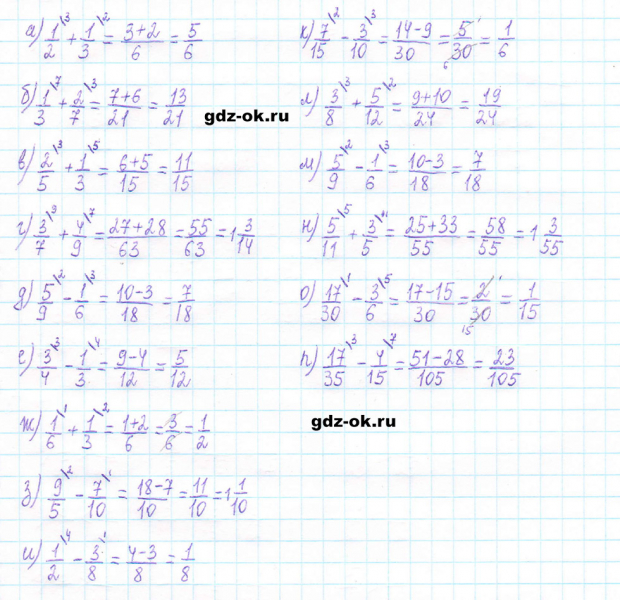 а) 1/2\3 + 1/3\2 = (3+2)/6 = 5/6
б) 1/3\7 + 2/7\3 = (7+6)/21 = 13/21
в) 2/5\3 + 1/3\5 = (6+5)/15 = 11/15
г) 3/7\9 + 4/9\7 = (27+28)/63 = 55/63 = 1 3/14
д) 5/9\2 - 1/6\3 = (10-3)/18 = 7/18
е) 3/4\3 - 1/3\4 = (9-4)/12 = 5/12
ж) 1/6\1 + 1/3\2 = (1+2)/6 = 3/6 = 1/2
з) 9/5\2 - 7/10\1 = (18-7)/10 = 11/10 = 1 1/10
и) 1/2\4 - 3/8\1 = (4-3)/8 = 1/8
к) 7/15\2 - 3/10\3 = (14-9)/30 = 5/30 = 1/6
л) 3/8\3 + 5/12\2 = (9+10)/24 = 19/24
м) 5/9\2 - 1/6\3 = (10-3)/18 = 7/18
н) 5/11\5 + 3/5\11 = (25+33)/55 = 58/55 = 1 3/55
о) 17/30\1 - 3/6\5 = (17-15)/30 = 2/30 = 1/15
п) 17/35\3 - 4/15\7 = (51-28)/105 = 23/105
gdz-ok.ru
gdz-ok.ru